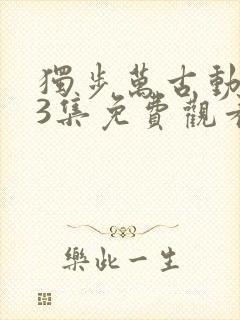 獨步萬古動
3集免費觀看
樂此一生